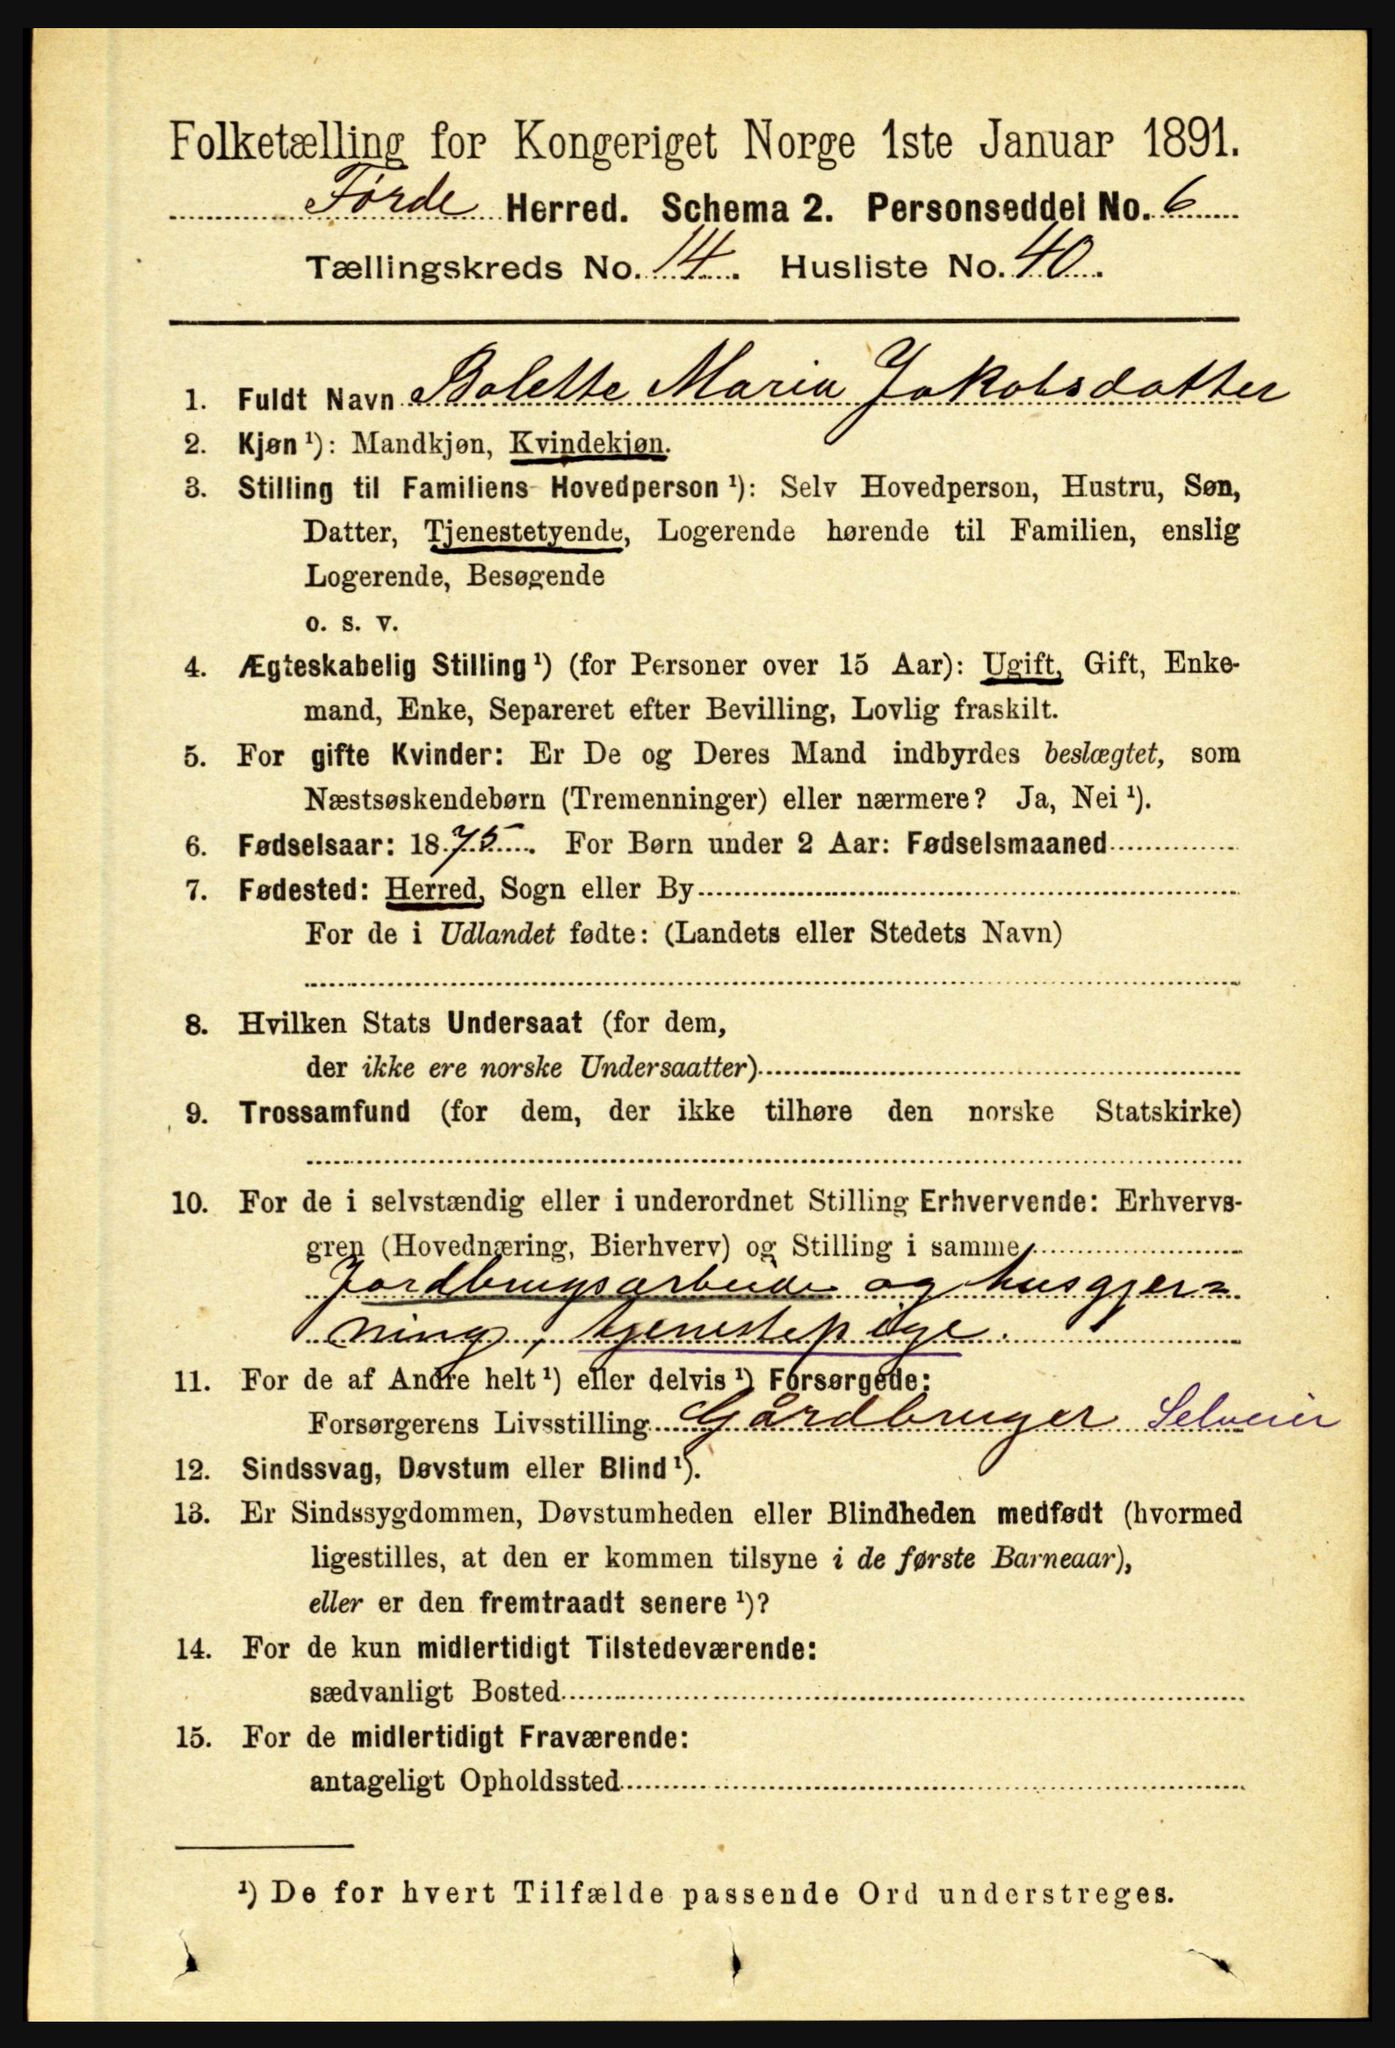 Folketælling for Kongeriget Norge 1ste Januar 1891.
Førde Herred. Schema 2. Personseddel No. 6
Tællingskreds No. 14. Husliste No. 40.
1. Fuldt Navn Bolette Maria Jakobsdatter
2. Kjøn ¹): Mandkjøn, Kvindekjøn.
3. Stilling til Familiens Hovedperson ¹): Selv Hovedperson, Hustru, Søn,
Datter, Tjenestetyende, Logerende hørende til Familien, enslig
Logerende, Besøgende
o. s. v.
4. Ægteskabelig Stilling ¹) (for Personer over 15 Aar): Ugift, Gift, Enke-
mand, Enke, Separeret efter Bevilling, Lovlig fraskilt.
5. For gifte Kvinder: Er De og Deres Mand indbyrdes beslægtet, som
Næstsøskendebørn (Tremenninger) eller nærmere? Ja, Nei ¹).
6. Fødselsaar: 1875. For Børn under 2 Aar: Fødselsmaaned
7. Fødested: Herred, Sogn eller By
For de i Udlandet fødte: (Landets eller Stedets Navn)
8. Hvilken Stats Undersaat (for dem,
der ikke ere norske Undersaatter)
9. Trossamfund (for dem, der ikke tilhøre den norske Statskirke)
10. For de i selvstændig eller i underordnet Stilling Erhvervende: Erhvervs-
gren (Hovednæring, Bierhverv) og Stilling i samme
Jordbrugsarbeide og husgjer=
ning, tjenestepige.
11. For de af Andre helt ¹) eller delvis ¹) Forsørgede:
Forsørgerens Livsstilling Gårdbruger Selveier
12. Sindssvag, Døvstum eller Blind ¹).
13. Er Sindssygdommen, Døvstumheden eller Blindheden medfødt (hvormed
ligestilles, at den er kommen tilsyne i de første Barneaar),
eller er den fremtraadt senere ¹)?
14. For de kun midlertidigt Tilstedeværende:
sædvanligt Bosted
15. For de midlertidigt Fraværende:
antageligt Opholdssted
¹) De for hvert Tilfælde passende Ord understreges.